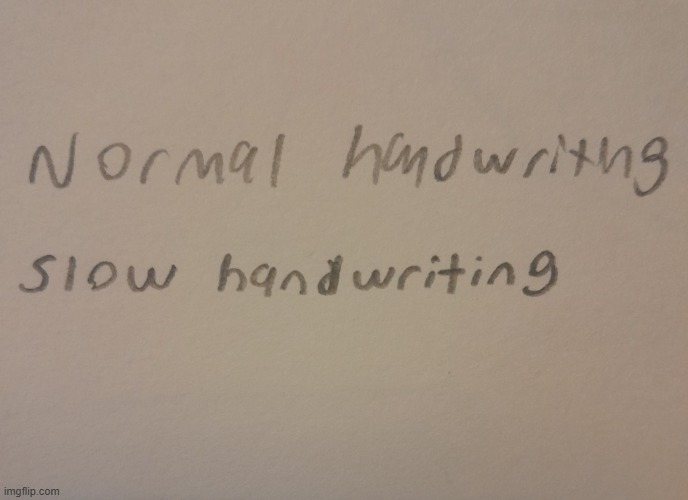 Normal handwriting
Slow handwriting
imgflip.com